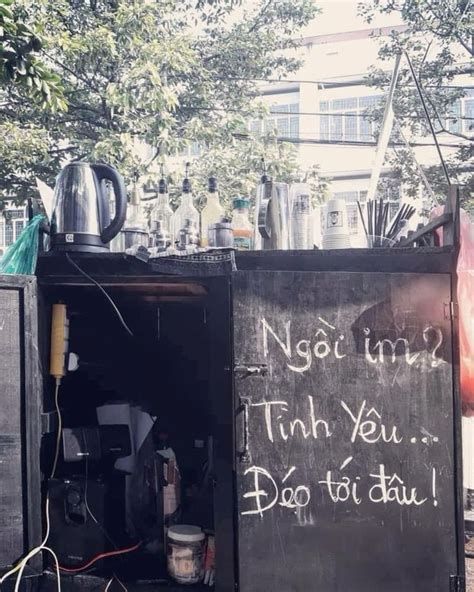 Ngồi im?
Tình Yêu...
Đéo tới đâu!